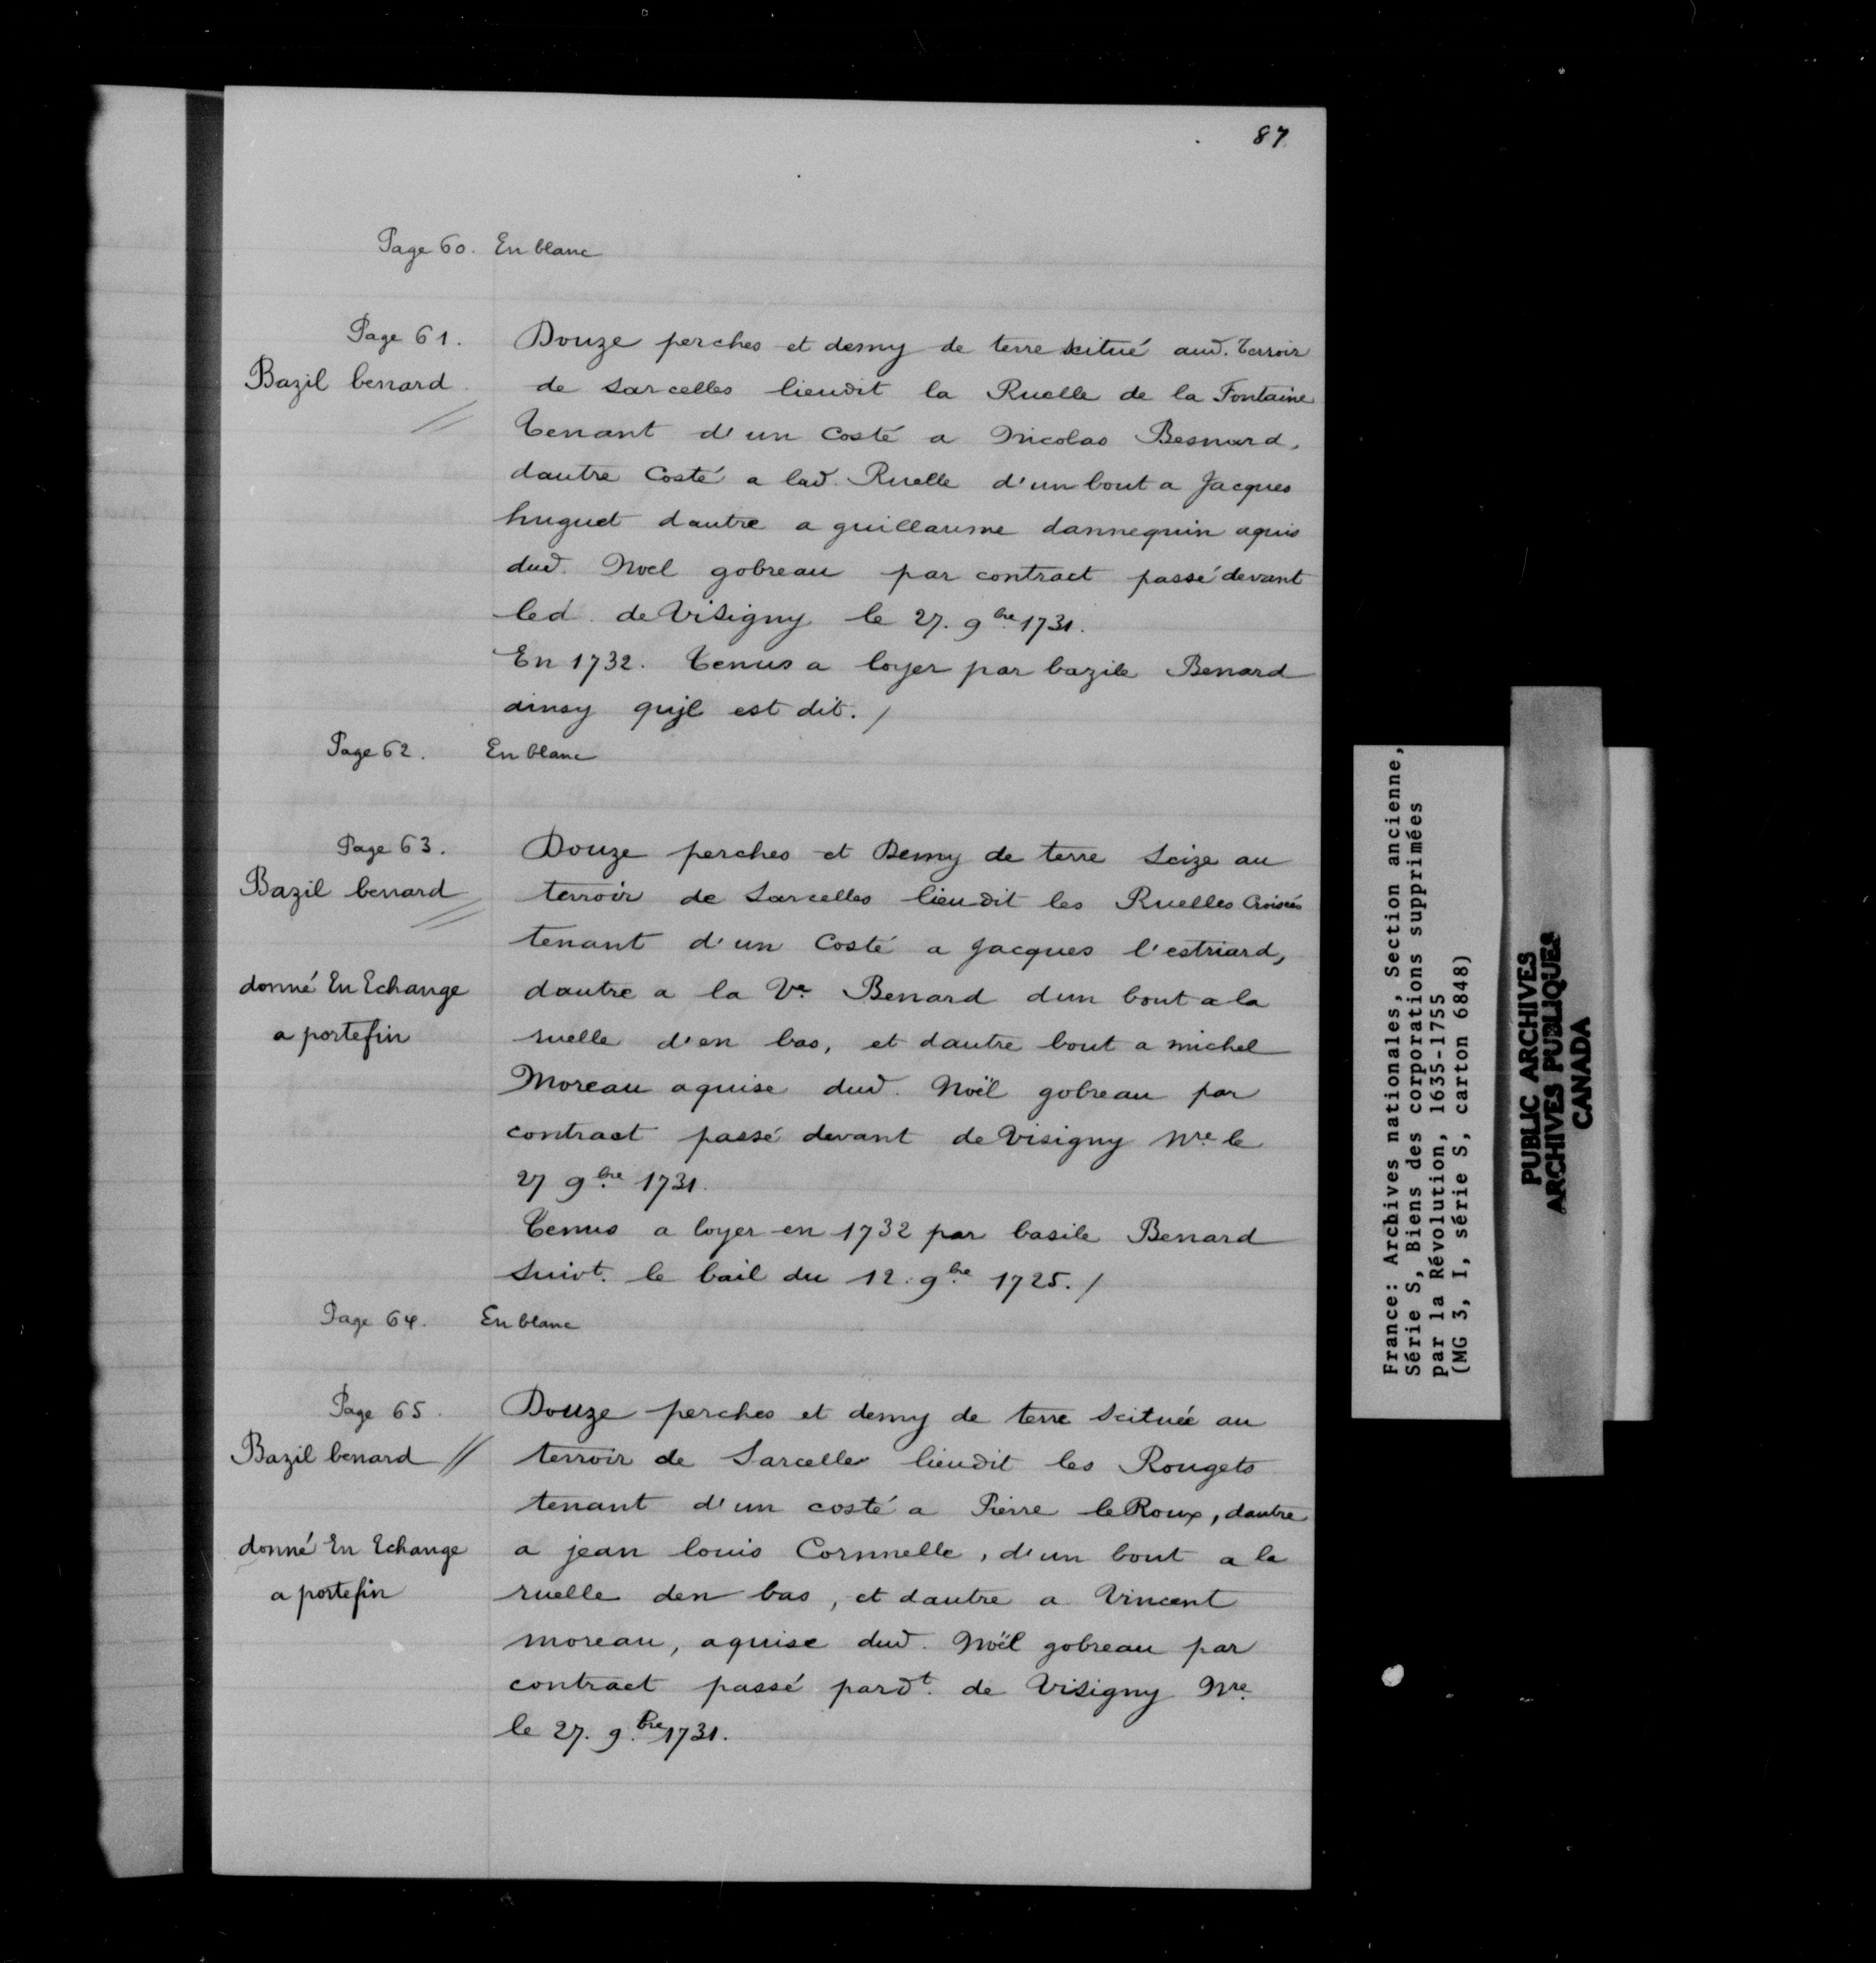 87
Page 60. En blanc
Page 61.
Bazil benard
Douze perches et demy de terre scitué aud. Terroir
de Sarcelles lieudit la Ruelle de la Fontaine
Tenant d'un Costé a Nicolas Besnard,
dautre Costé a lad. Ruelle d'un bout a Jacques
huguet dautre a guillaume dannequin aquis
dud. Noel gobreau par contract passé devant
led. de Visigny le 27. 9bre 1731.
En 1732. Tenus a loyer par bazile Benard
ainsy qujl est dit. /
Page 62. En blanc
Page 63.
Bazil benard
donné En Echange
a portefin
Douze perches et Demy de terre Seize au
terroir de Sarcelles lieudit les Ruelles Croisées
tenant d'un Costé a Jacques l'estriard,
dautre a la Ve. Benard dun bout a la
ruelle d'en bas, et dautre bout a michel
Moreau aquise dud. Noël gobreau par
contract passé devant de Visigny Nre. le
27 9bre 1731.
Tenus a loyer en 1732 par basile Benard
Suivt. le bail du 12. 9bre 1725. /
Page 64. En blanc
Page 65.
Bazil benard //
donné En Echange
a portefin
Douze perches et demy de terre Scituée au
terroir de Sarcelles lieudit les Rougets
tenant d'un costé a Pierre le Roux, dautre
a jean louis Cornnelle, d'un bout a la
ruelle den bas, et dautre a Vincent
moreau, aquise dud. Noël gobreau par
contract passé pardt. de Visigny Nre.
le 27. 9.bre 1731.
France: Archives nationales, Section ancienne,
Série S, Biens des corporations supprimées
par la Révolution, 1635-1755
(MG 3, I, série S, carton 6848)
PUBLIC ARCHIVES
ARCHIVES PUBLIQUES
CANADA